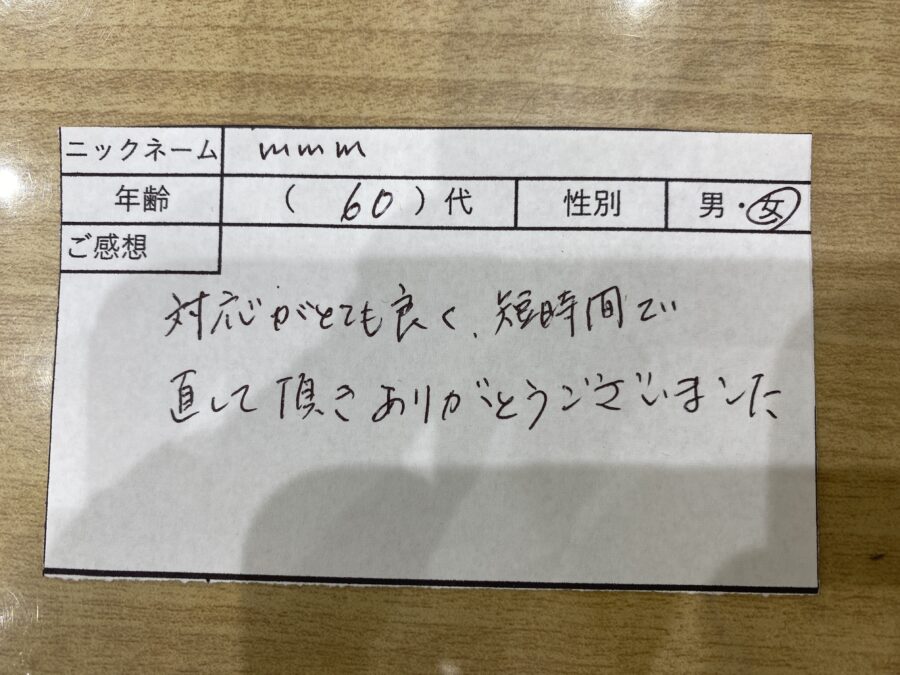 ニックネーム mmm
年齢 ( 60 ) 代 性別 男・女
ご感想
対応がとても良く、短時間で
直して頂きありがとうございました